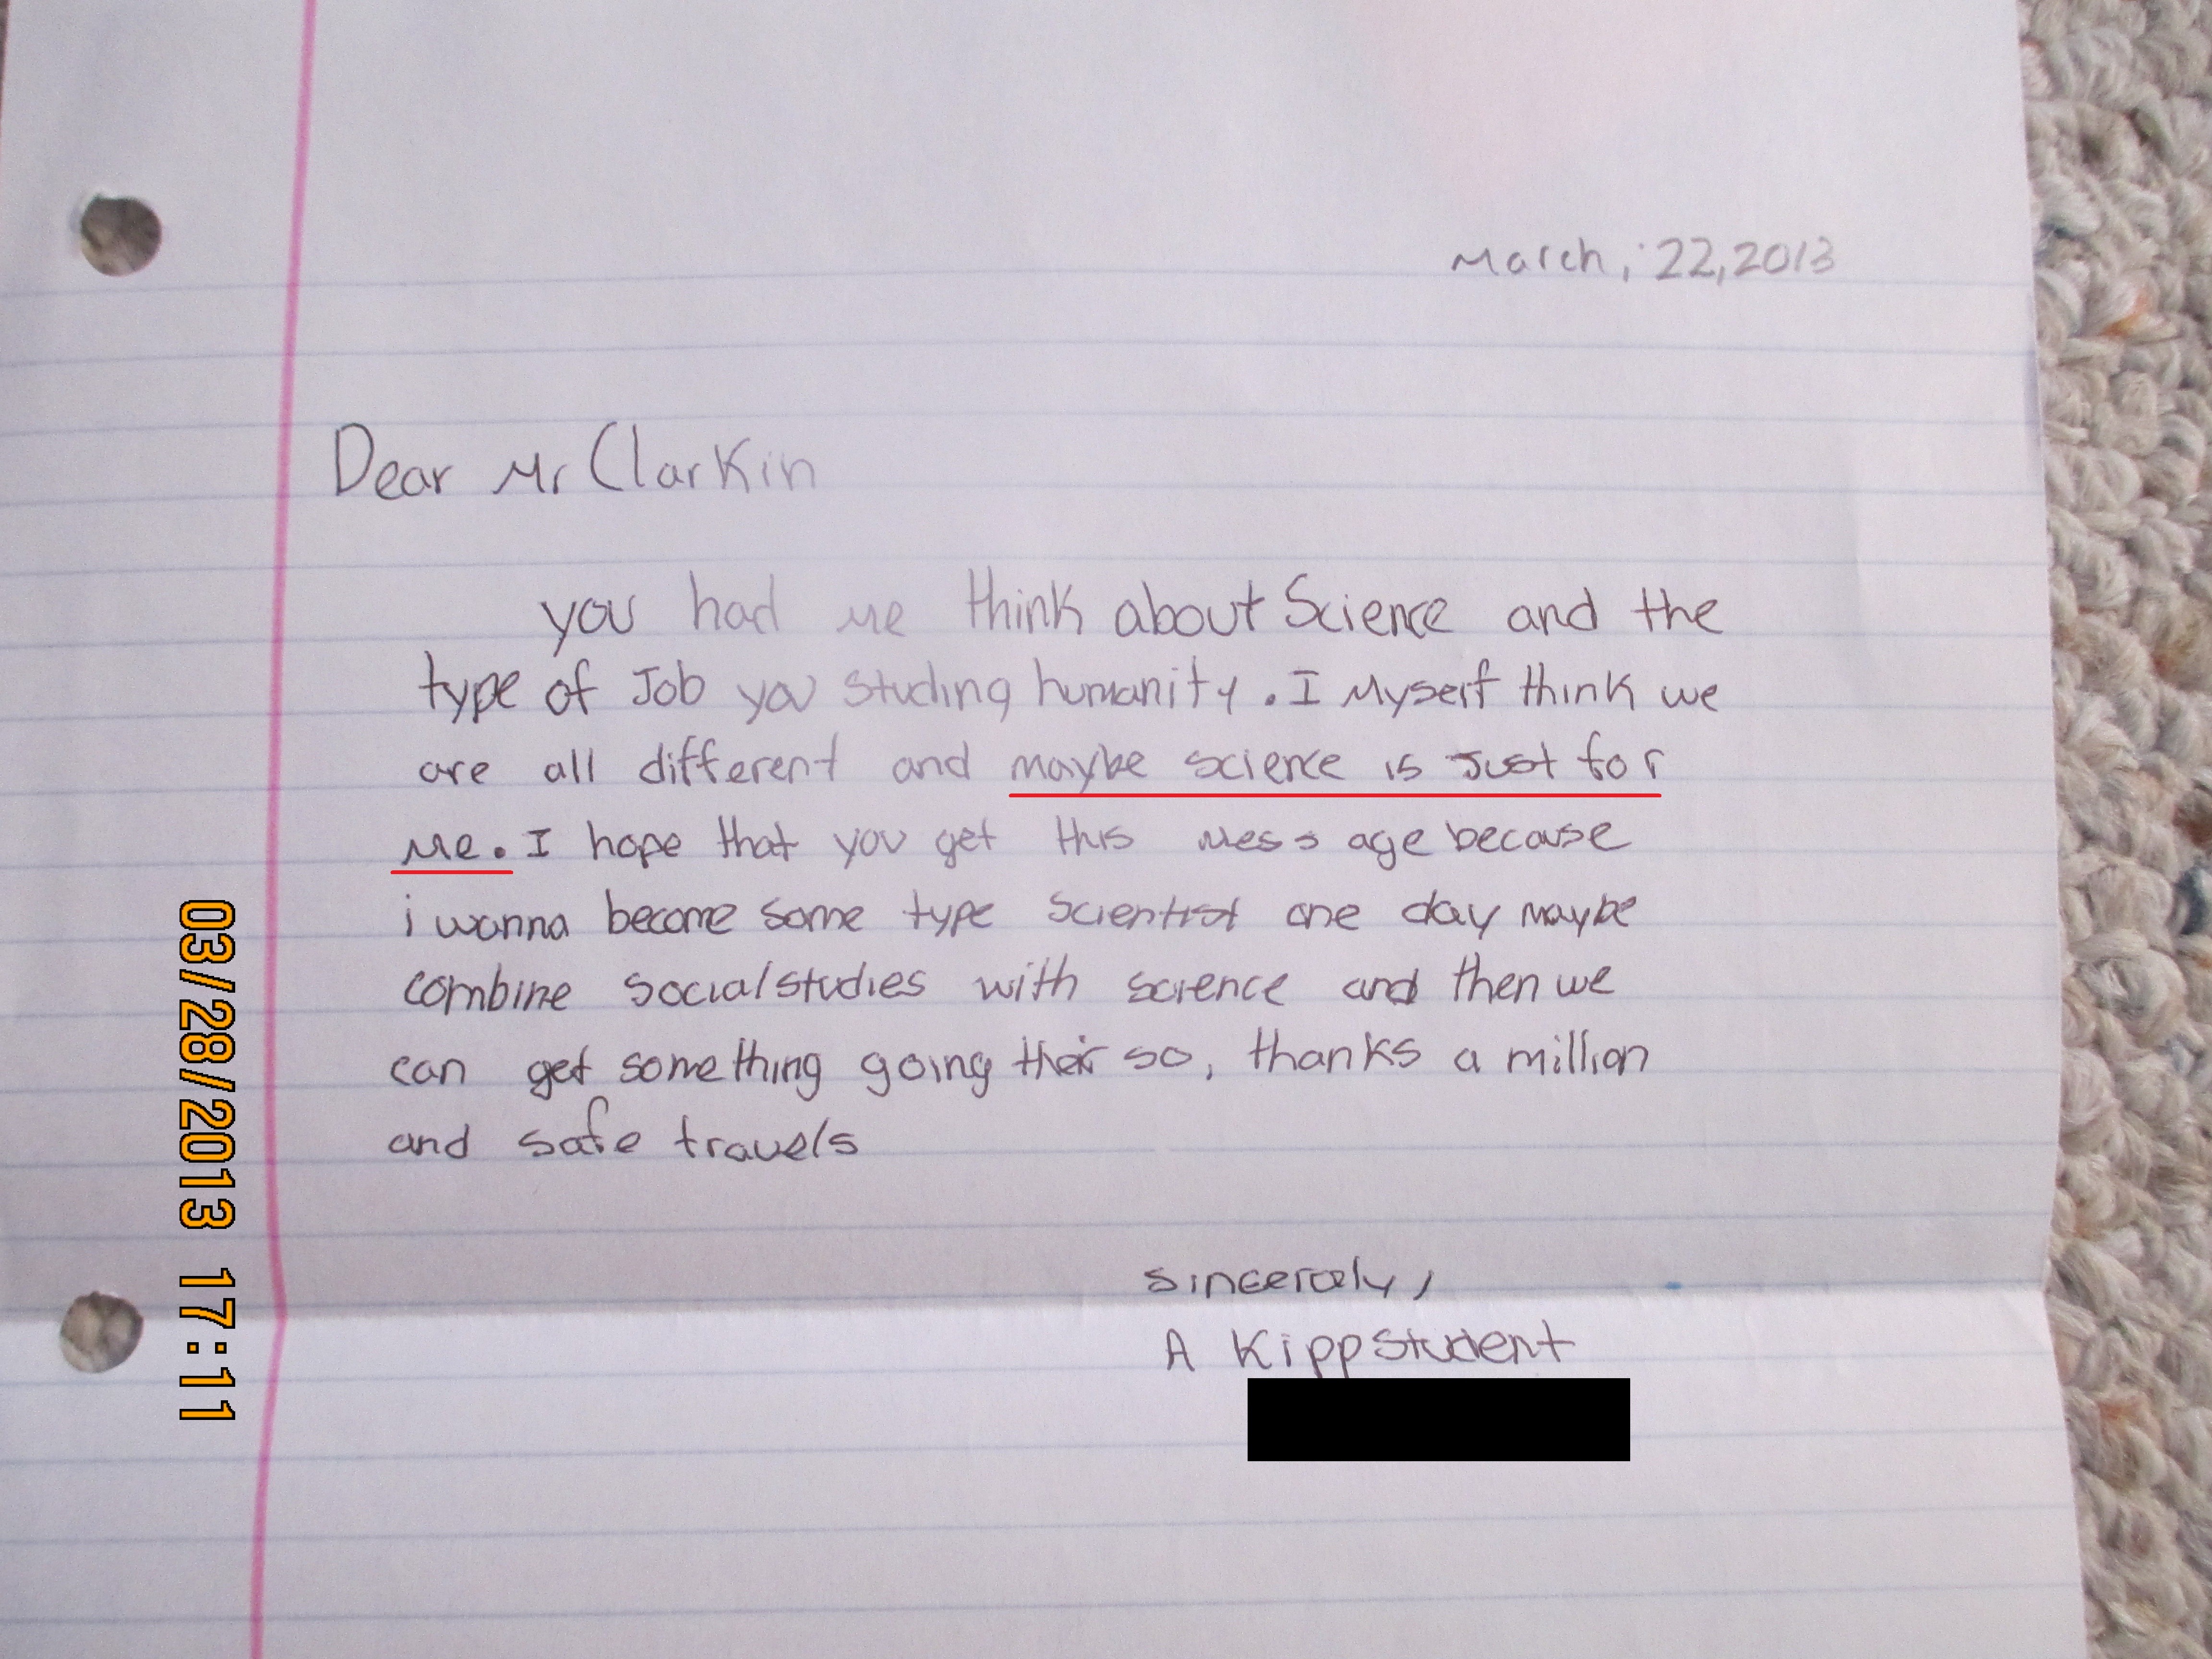 March, 22, 2013
Dear Mr Clarkin
you had me think about Science and the
type of Job you studing humanity. I Myself think we
are all different and maybe science is Just for
Me. I hope that you get this mess age because
i wanna become some type scientist one day maybe
combine socialstudies with science and then we
can get something going their so, thanks a million
and safe travels
sincerely,
A Kipp Student
03/28/2013 17:11